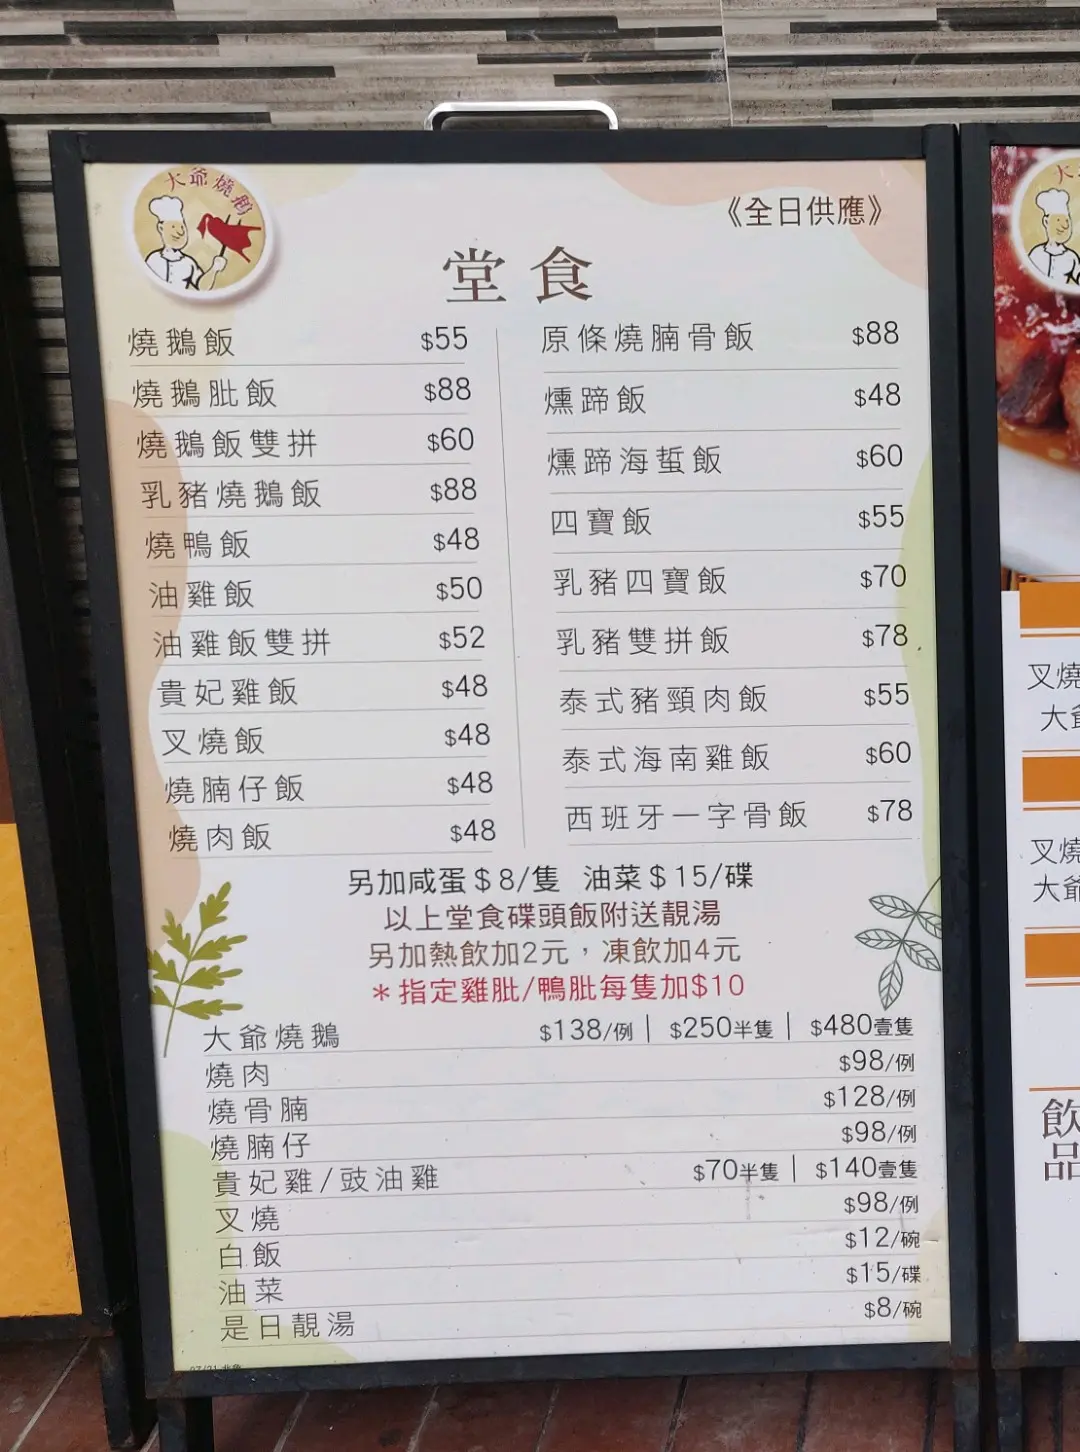 大爺燒鵝
《全日供應》
堂食
燒鵝飯 $55
燒鵝肶飯 $88
燒鵝飯雙拼 $60
乳豬燒鵝飯 $88
燒鴨飯 $48
油雞飯 $50
油雞飯雙拼 $52
貴妃雞飯 $48
叉燒飯 $48
燒腩仔飯 $48
燒肉飯 $48
原條燒腩骨飯 $88
燻蹄飯 $48
燻蹄海蜇飯 $60
四寶飯 $55
乳豬四寶飯 $70
乳豬雙拼飯 $78
泰式豬頸肉飯 $55
泰式海南雞飯 $60
西班牙一字骨飯 $78
另加咸蛋$8/隻 油菜$15/碟
以上堂食碟頭飯附送靚湯
另加熱飲加2元，凍飲加4元
*指定雞肶/鴨肶每隻加$10
大爺燒鵝 $138/例 | $250半隻 | $480壹隻
燒肉 $98/例
燒骨腩 $128/例
燒腩仔 $98/例
貴妃雞/豉油雞 $70半隻 | $140壹隻
叉燒 $98/例
白飯 $12/碗
油菜 $15/碟
是日靚湯 $8/碗
大
叉燒
大爺
叉燒
大爺
飲
品